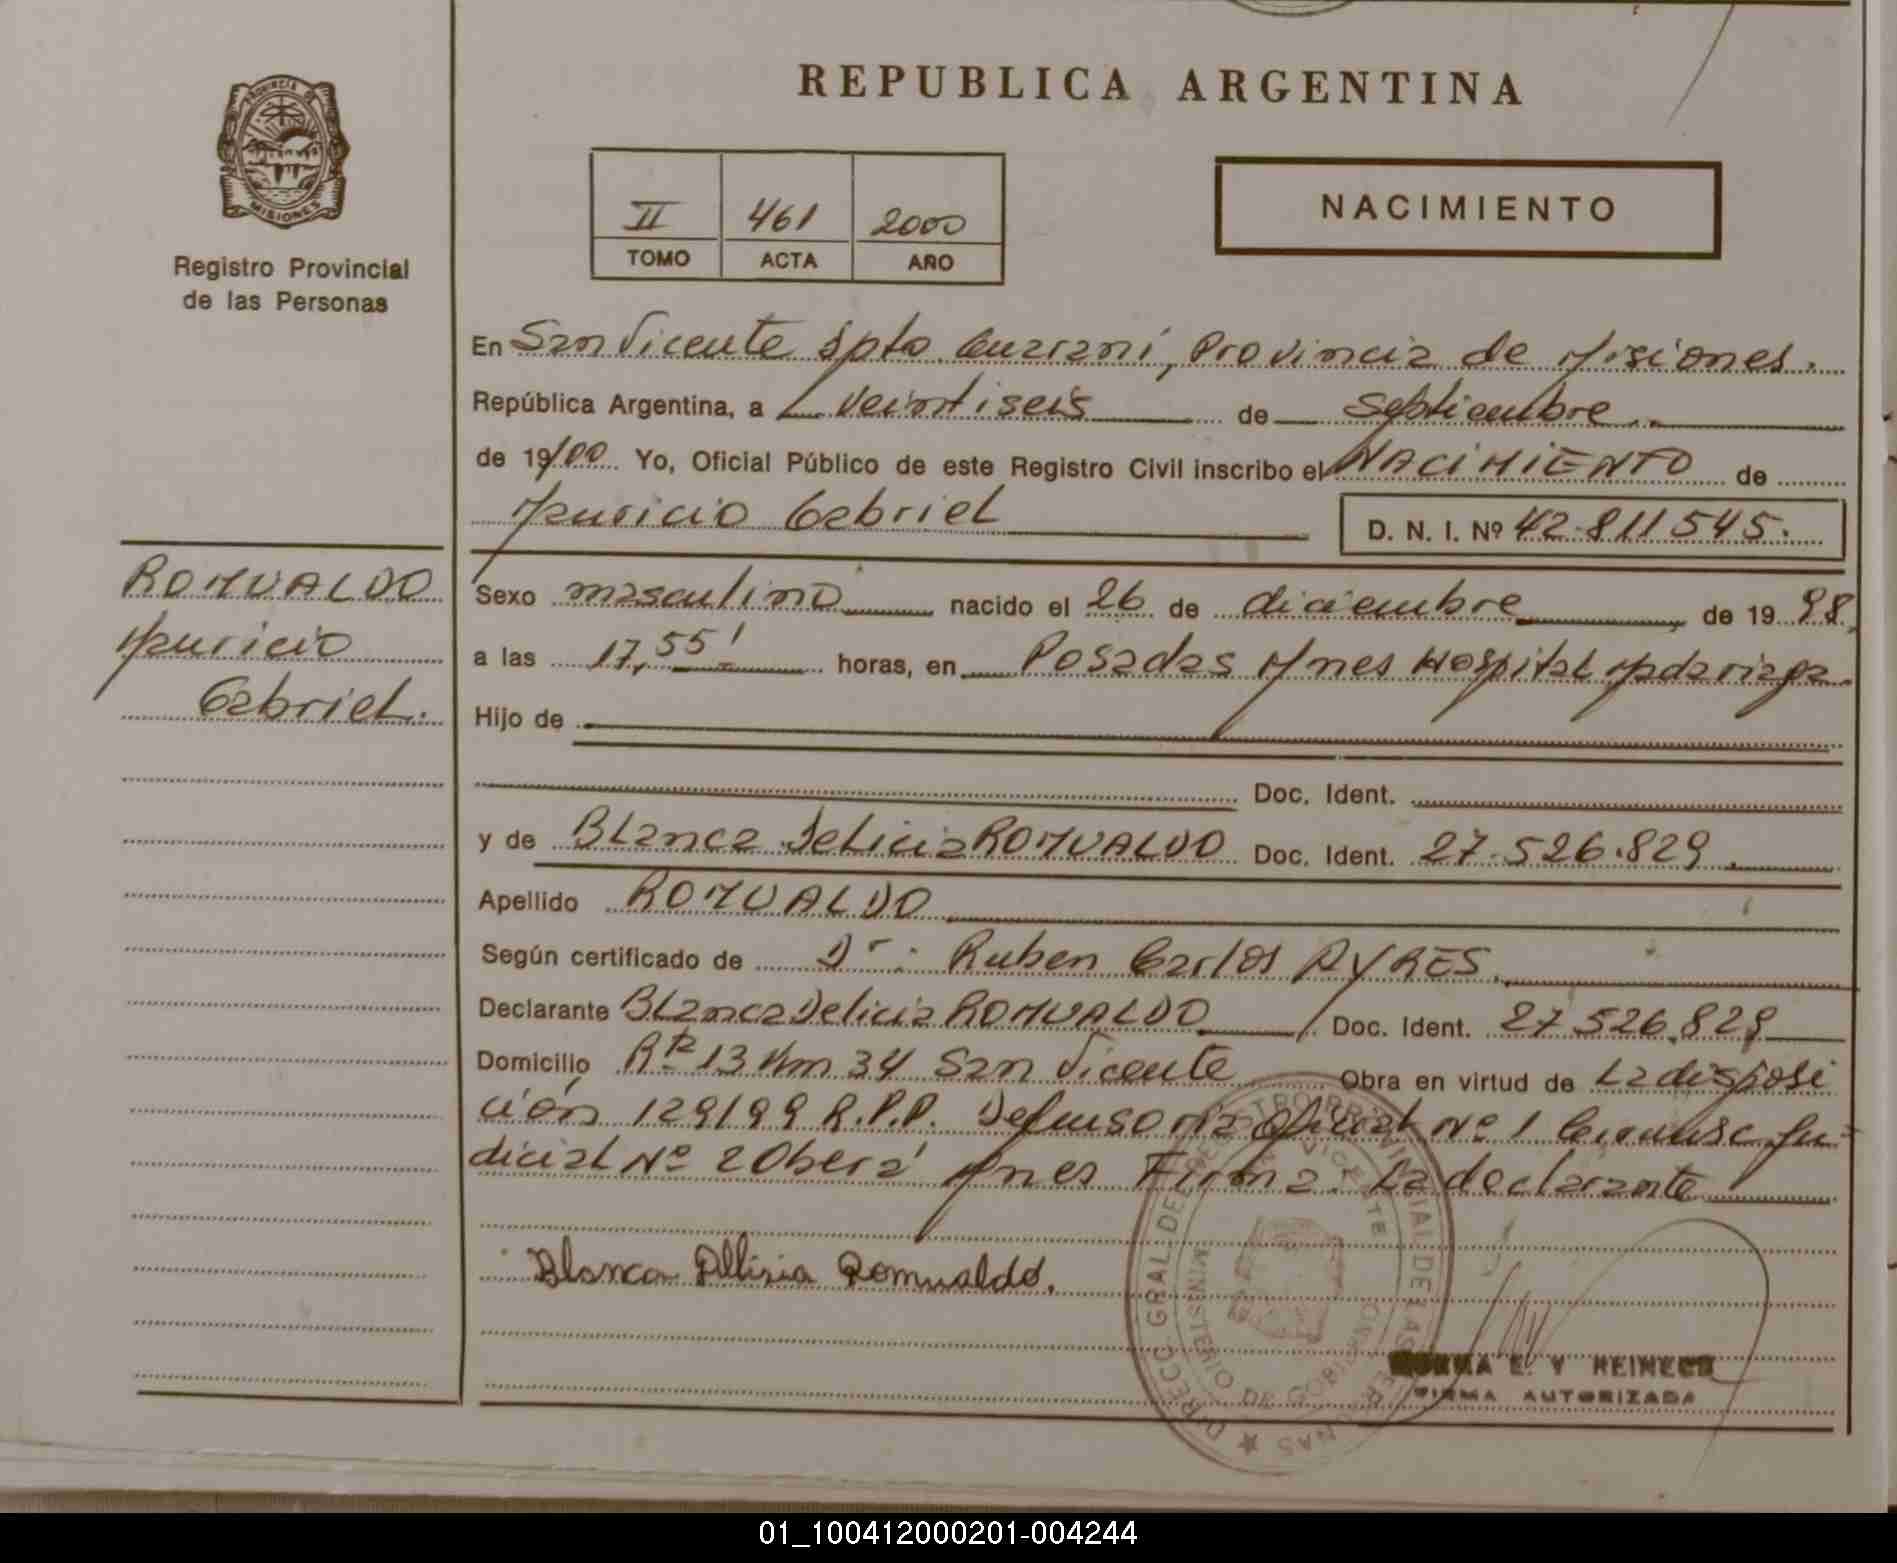 REPUBLICA ARGENTINA
PROVINCIA DE
MISIONES
Registro Provincial
de las Personas
II 461 2000
TOMO ACTA AÑO
NACIMIENTO
En San Vicente Dpto Guaraní, Provincia de Misiones.
República Argentina, a veintiseis de Septiembre
de 19/00 Yo, Oficial Público de este Registro Civil inscribo el NACIMIENTO de
Mauricio Gabriel
D. N. I. Nº 42.811545.
ROMUALDO
Mauricio
Gabriel.
Sexo masculino nacido el 26 de diciembre de 19 98
a las 17,55' horas, en Posadas Mnes Hospital Madariaga
Hijo de
Doc. Ident.
y de Blanca Delicia ROMUALDO Doc. Ident. 27.526.829
Apellido ROMUALDO
Según certificado de Dr. Ruben Carlos AYRES.
Declarante Blanca Delicia ROMUALDO Doc. Ident. 27.526.829
Domicilio Rta 13 Km 34 San Vicente Obra en virtud de La disposi
ción 129/99 R.P.P. Defensoria Oficial Nº 1 Circunsc. Ju=
dicial Nº 2 Oberá Mnes Firma: La declarante
Blanca Romualdo.
DIRECC. GRAL. DEL REGISTRO PROVINCIAL DE LAS PERSONAS
MINISTERIO DE GOBIERNO
VICENTE
NORMA E. V REINECK
FIRMA AUTORIZADA
01_100412000201-004244